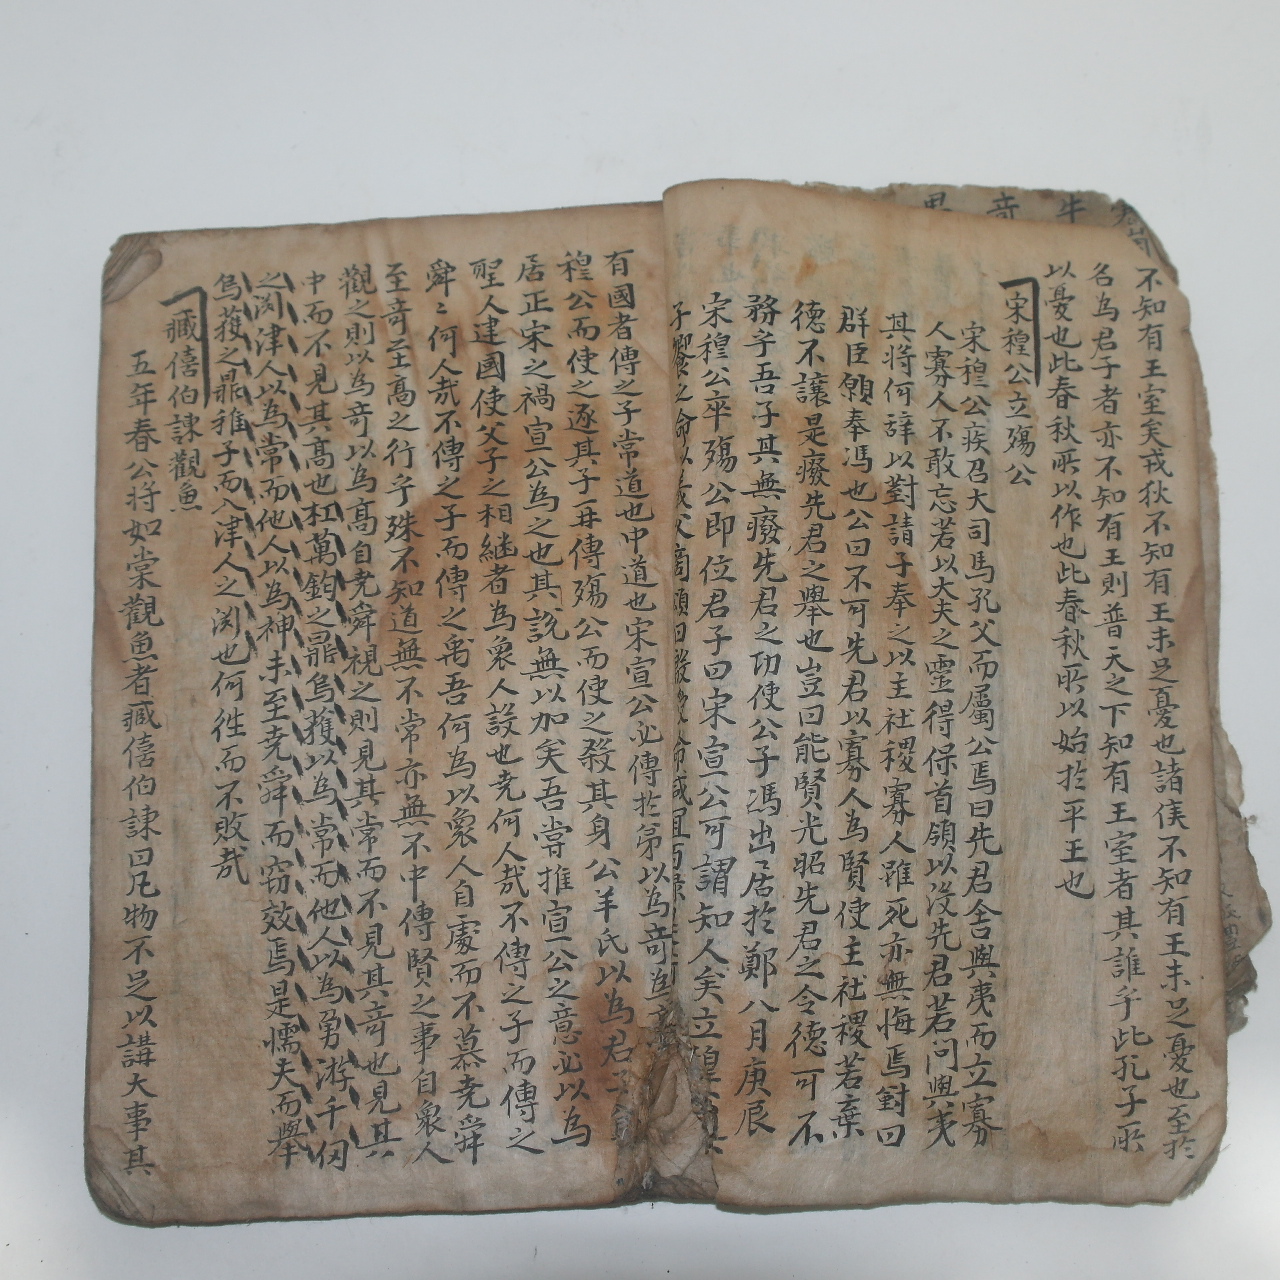 不知有王室矣戎狄不知有王未足憂也諸侯不知有王未足憂也至於
名為君子者亦不知有王則普天之下知有王室者其誰乎此孔子所
以憂也此春秋所以作也此春秋所以始於平王也
宋穆公立殤公
宋穆公疾召大司馬孔父而屬公焉曰先君舍與夷而立寡
人寡人不敢忘若以大夫之靈得保首領以沒先君若問與夷
其將何辞以對請子奉之以主社稷寡人雖死亦無悔焉對曰
群臣願奉馮也公曰不可先君以寡人為賢使主社稷若棄
德不讓是癈先君之舉也豈曰能賢光昭先君之令德可不
務乎吾子其無癈先君之功使公子馮出居於鄭八月庚辰
宋穆公卒殤公即位君子曰宋宣公可謂知人矣立穆公其
子饗之命以義夫商頌曰殷受命咸宜百祿
有國者傳之子常道也中道也宋宣公必傳於弟以為奇為
穆公而使之逐其子再傳殤公而使之殺其身公羊氏以為君子
居正宋之禍宣公為之也其說無以加矣吾嘗推宣公之意必以為
聖人建國使父子之相継者為衆人設也堯何人㢤不傳之子而傳之
舜舜何人㢤不傳之子而傳之禹吾何為以衆人自處而不慕堯舜
至奇至髙之行乎殊不知道無不常亦無不中傳賢之事自衆人
觀之則以為奇以為髙自堯舜視之則見其常而不見其奇也見其
中而不見其髙也杠萬鈞之鼎烏獲以為常而他人以為勇游千仞
之渕津人以為常而他人以為神未至堯舜而窃效焉是懦夫而舉
烏獲之鼎稚子而入津人之渕也何徃而不敗㢤
臧僖伯諫觀魚
五年春公將如棠觀魚者臧僖伯諫曰凡物不足以講大事其